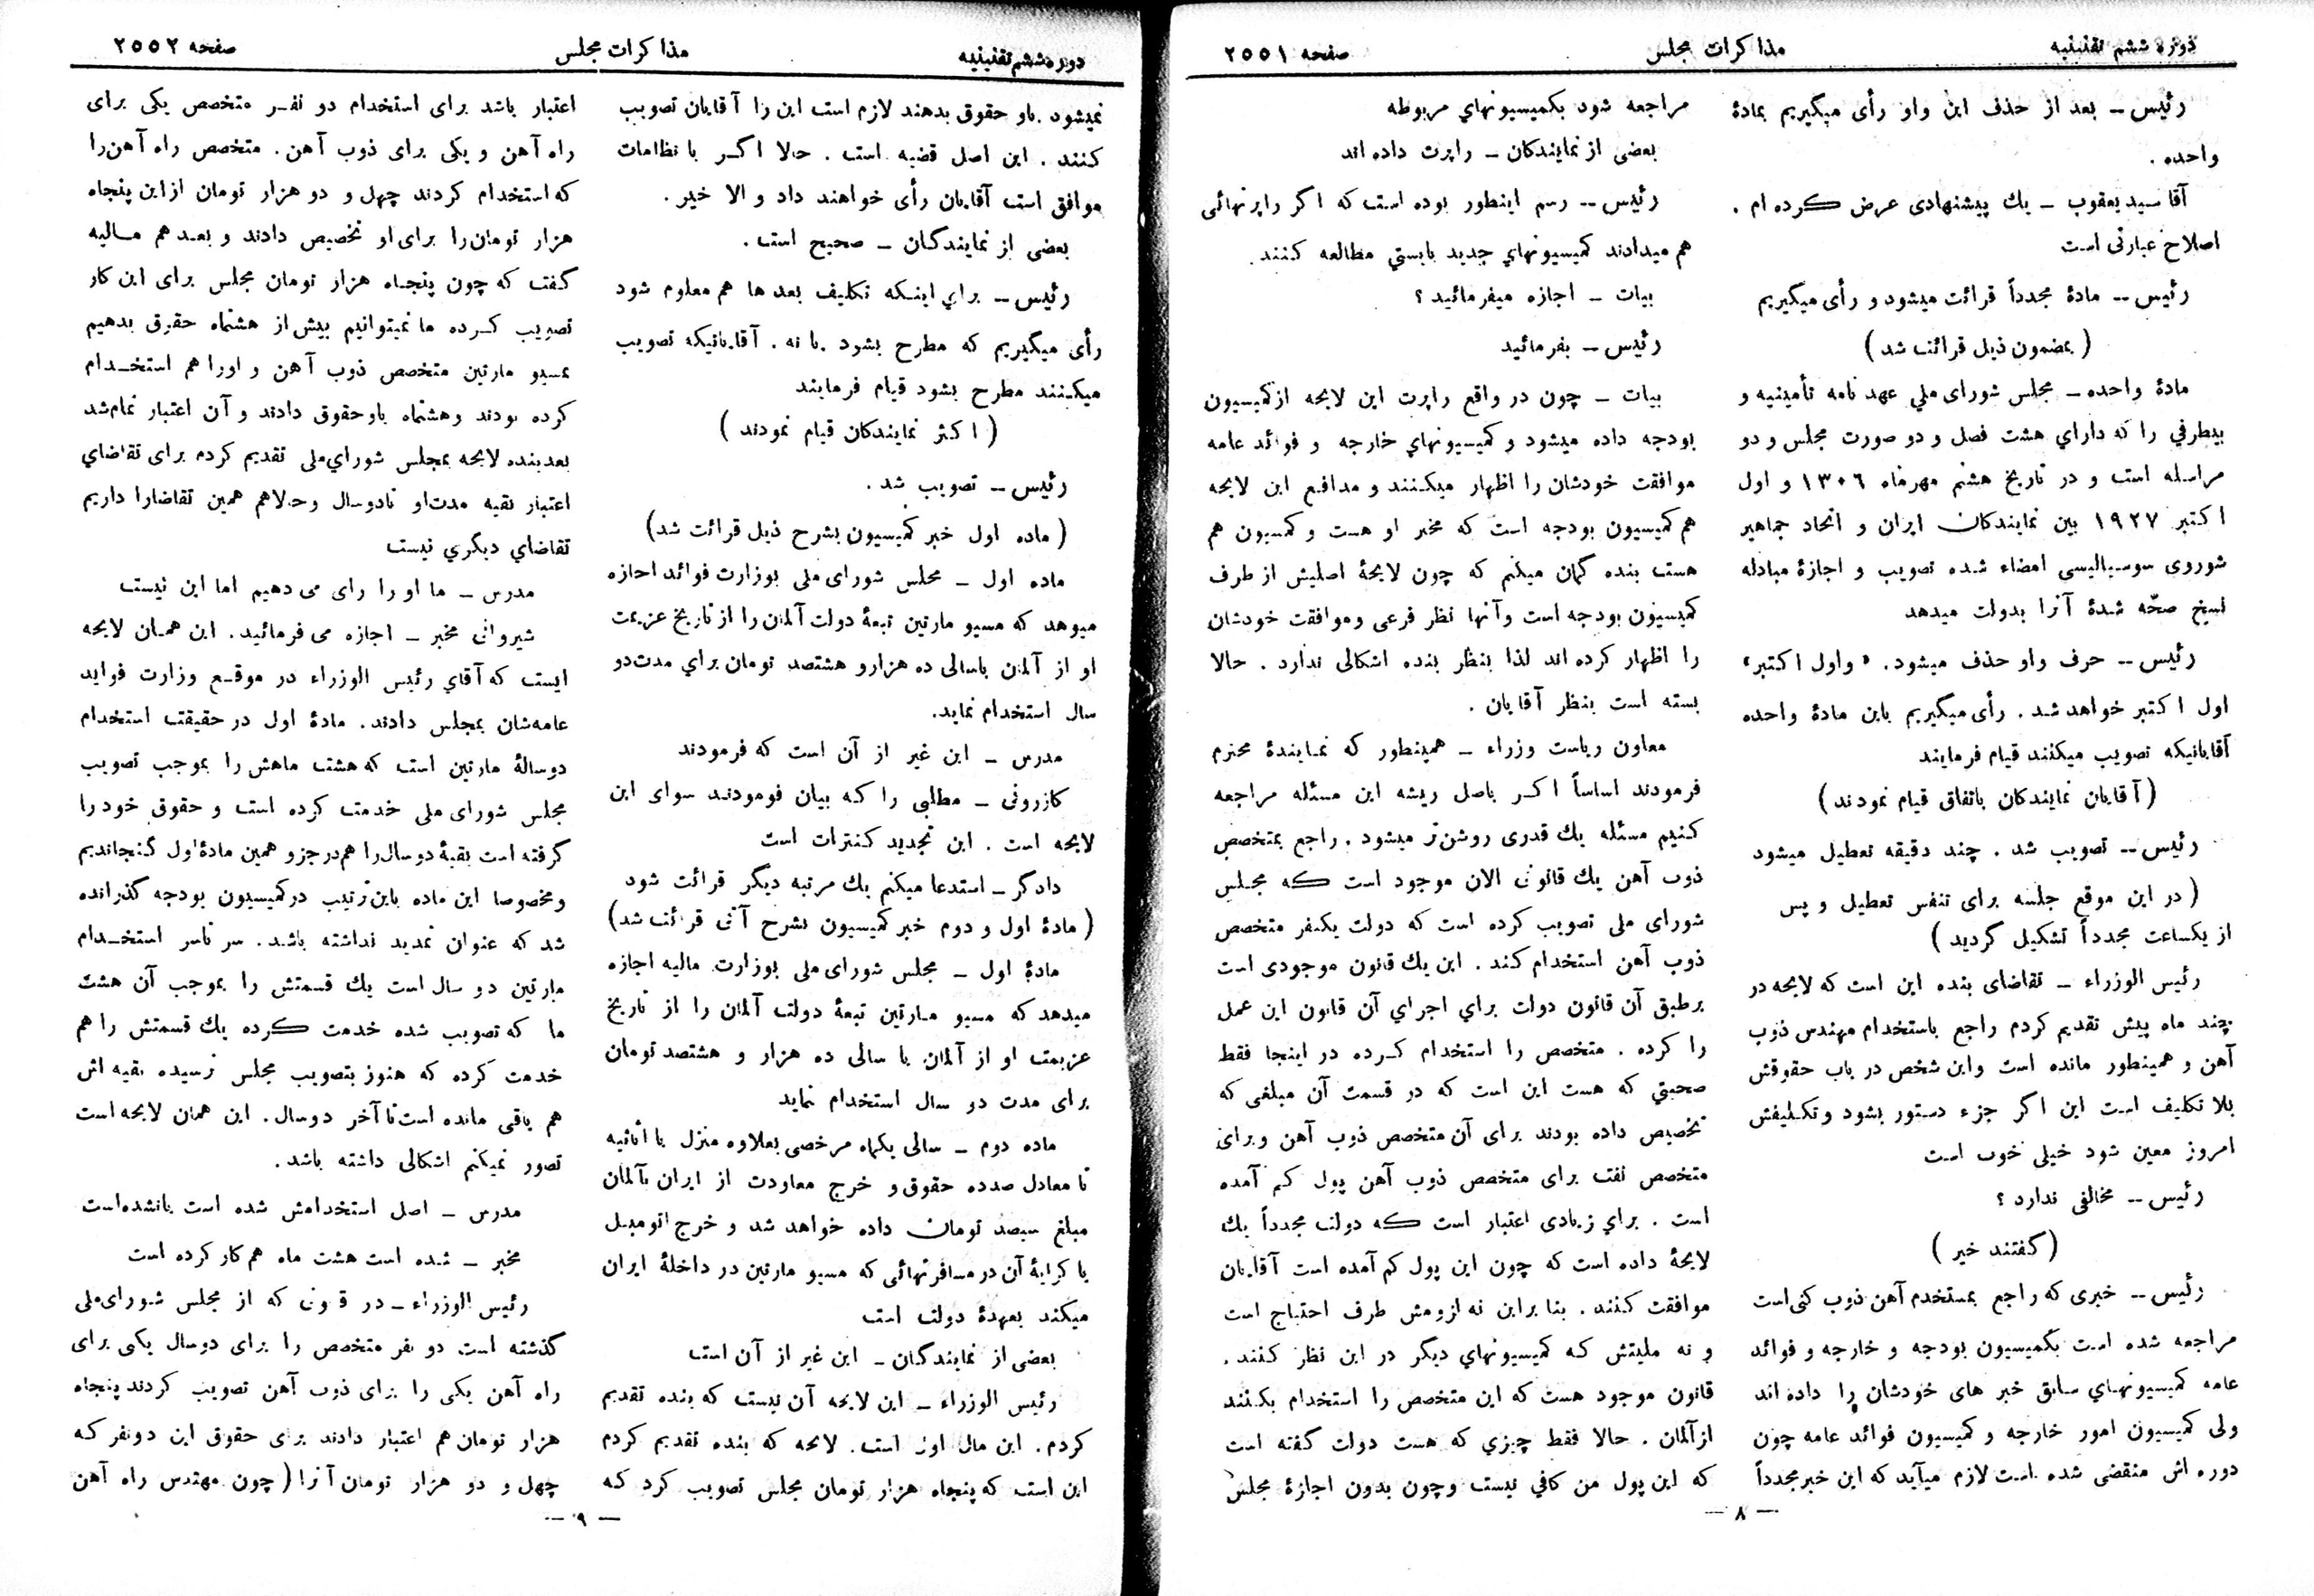 دوره ششم تقنینیه
مذاکرات مجلس
صفحه ۲۵۵۱
رئیس ــ بعد از حذف این واو رأی میگیریم بمادهٔ
واحده .
آقا سید یعقوب ــ یك پیشنهادی عرض کرده ام .
اصلاح عبارتی است
رئیس ــ مادهٔ مجدداً قرائت میشود و رأی میگیریم
( بمضمون ذیل قرائت شد )
مادهٔ واحده ــ مجلس شورای ملي عهد نامه تأمینیه و
بیطرفي را که داراي هشت فصل و دو صورت مجلس و دو
مراسله است و در تاریخ هشتم مهرماه ۱۳۰۶ و اول
اکتبر ۱۹۲۷ بین نمایندکان ایران و اتحاد جماهیر
شوروی سوسیالیسی امضاء شده تصویب و اجازهٔ مبادله
نسخ صحّه شدهٔ آنرا بدولت میدهد
رئیس ــ حرف واو حذف میشود. « و اول اکتبر »
اول اکتبر خواهد شد . رأی میگیریم باین مادهٔ واحده
آقایانیکه تصویب میکنند قیام فرمایند
( آقایان نمایندکان باتفاق قیام نمودند )
رئیس ــ تصویب شد . چند دقیقه تعطیل میشود
( در این موقع جلسه برای تنفس تعطیل و پس
از یکساعت مجدداً تشکیل گردید )
رئیس الوزراء ــ تقاضای بنده این است که لایحه در
چند ماه پیش تقدیم کردم راجع باستخدام مهندس ذوب
آهن و همینطور مانده است و این شخص در باب حقوقش
بلا تکلیف است این اگر جزء دستور بشود و تکلیفش
امروز معین شود خیلی خوب است
رئیس ــ مخالفی ندارد ؟
( گفتند خیر )
رئیس ــ خبری که راجع بمستخدم آهن ذوب کنی است
مراجعه شده است بکمیسیون بودجه و خارجه و فوائد
عامه کمیسیونهاي سابق خبر های خودشان را داده اند
ولی کمیسیون امور خارجه و کمیسیون فوائد عامه چون
دوره اش منقضی شده است لازم میآید که این خبر مجدداً
مراجعه شود بکمیسیونهاي مربوطه
بعضی از نمایندکان ــ راپرت داده اند
رئیس ــ رسم اینطور بوده است که اگر راپرتهائی
هم میدادند کمیسیونهاي جدید بایستي مطالعه کنند.
بیات ــ اجازه میفرمائید ؟
رئیس ــ بفرمائید
بیات ــ چون در واقع راپرت این لایحه از کمیسیون
بودجه داده میشود و کمیسیونهاي خارجه و فوائد عامه
موافقت خودشان را اظهار میکنند و مدافع این لایحه
هم کمیسیون بودجه است که مخبر او هست و کمسیون هم
هست بنده گمان میکنم که چون لایحهٔ اصلیش از طرف
کمیسیون بودجه است و آنها نظر فرعی و موافقت خودشان
را اظهار کرده اند لذا بنظر بنده اشکالی ندارد . حالا
بسته است بنظر آقایان .
معاون ریاست وزراء ــ همینطور که نمایندهٔ محترم
فرمودند اساساً اکر باصل ریشه این مسئله مراجعه
کنیم مسئله یك قدری روشن‌تر میشود . راجع بمتخصص
ذوب آهن یك قانونی الان موجود است که مجلس
شورای ملی تصویب کرده است که دولت یکنفر متخصص
ذوب آهن استخدام کند . این یك قانون موجودی است
برطبق آن قانون دولت براي اجراي آن قانون این عمل
را کرده . متخصص را استخدام کرده در اینجا فقط
صحبتي که هست این است که در قسمت آن مبلغی که
تخصیص داده بودند برای آن متخصص ذوب آهن و برای
متخصص نفت برای متخصص ذوب آهن پول کم آمده
است . براي زیادی اعتبار است که دولت مجدداً یك
لایحهٔ داده است که چون این پول کم آمده است آقایان
موافقت کنند . بنا براین نه لزومش طرف احتیاج است
و نه ملیتش که کمیسیونهاي دیگر در این نظر کنند .
قانون موجود هست که این متخصص را استخدام بکنند
از آلمان . حالا فقط چیزي که هست دولت گفته است
که این پول من کافي نیست و چون بدون اجازهٔ مجلس
— ۸ —
دوره ششم تقنینیه
مذاکرات مجلس
صفحه ۲۵۵۲
نمیشود باو حقوق بدهند لازم است این را آقایان تصویب
کنند . این اصل قضیه است . حالا اکر با نظامات
موافق است آقایان رأی خواهند داد و الا خیر .
بعضی از نمایندگان ــ صحیح است .
رئیس ــ براي اینکه تکلیف بعدها هم معلوم شود
رأی میگیریم که مطرح بشود یا نه . آقایانیکه تصویب
میکنند مطرح بشود قیام فرمایند
( اکثر نمایندکان قیام نمودند )
رئیس ــ تصویب شد .
( ماده اول خبر کمیسیون بشرح ذیل قرائت شد)
ماده اول ــ مجلس شورای ملی بوزارت فوائد اجازه
میوهد که مسیو مارتین تبعهٔ دولت آلمان را از تاریخ عزیمت
او از آلمان بسالی ده هزار و هشتصد تومان براي مدت دو
سال استخدام نماید.
مدرس ــ این غیر از آن است که فرمودند
کازرونی ــ مطلبی را که بیان فومودند سوای این
لایحه است . این تجدید کنترات است
دادگر ــ استدعا میکنم یك مرتبه دیگر قرائت شود
( مادهٔ اول و دوم خبر کمیسیون بشرح آتی قرائت شد)
مادهٔ اول ــ مجلس شورای ملی بوزارت مالیه اجازه
میدهد که مسیو مارتین تبعهٔ دولت آلمان را از تاریخ
عزیمت او از آلمان با سالی ده هزار و هشتصد تومان
برای مدت دو سال استخدام نماید
ماده دوم ــ سالی یکماه مرخصی بعلاوه منزل با اثاثیه
تا معادل صدده حقوق و خرج معاودت از ایران بآلمان
مبلغ سیصد تومان داده خواهد شد و خرج اتومبیل
یا کرایهٔ آن در مسافرتهائی که مسیو مارتین در داخلهٔ ایران
میکند بعهدهٔ دولت است
بعضی از نمایندگان ــ این غیر از آن است
رئیس الوزراء ــ این لایحه آن نیست که بنده تقدیم
کردم . این مال اول است. لایحه که بنده تقدیم کردم
این است که پنجاه هزار تومان مجلس تصویب کرد که
اعتبار باشد برای استخدام دو نفر متخصص یکی برای
راه آهن و یکی برای ذوب آهن. متخصص راه آهن را
که استخدام کردند چهل و دو هزار تومان از این پنجاه
هزار تومان را برای او تخصیص دادند و بعد هم مالیه
گفت که چون پنجاه هزار تومان مجلس برای این کار
تصویب کرده ما نمیتوانیم بیش از هشتماه حقوق بدهیم
بمسیو مارتین متخصص ذوب آهن و او را هم استخدام
کرده بودند و هشتماه باو حقوق دادند و آن اعتبار تمام شد
بعد بنده لایحه بمجلس شوراي ملی تقدیم کردم برای تقاضاي
اعتبار بقیه مدت او تا دو سال و حالا هم همین تقاضا را داریم
تقاضاي دیگري نیست
مدرس ــ ما او را رای می دهیم اما این نیست
شیروانی مخبر ــ اجازه می فرمائید. این همان لایحه
ایست که آقاي رئیس الوزراء در موقع وزارت فواید
عامه‌شان بمجلس دادند. مادهٔ اول در حقیقت استخدام
دوسالهٔ مارتین است که هشت ماهش را بموجب تصویب
مجلس شورای ملی خدمت کرده است و حقوق خود را
گرفته است بقیهٔ دو سال را هم در جزو همین مادهٔ اول گنجاندیم
و مخصوصا این ماده باین ترتیب در کمیسیون بودجه گذرانده
شد که عنوان تمدید نداشته باشد. سر تاسر استخدام
مارتین دو سال است یك قسمتش را بموجب آن هشت
ما که تصویب شده خدمت کرده یك قسمتش را هم
خدمت کرده که هنوز بتصویب مجلس نرسیده بقیه اش
هم باقی مانده است تا آخر دو سال. این همان لایحه است
تصور نمیکنم اشکالی داشته باشد.
مدرس ــ اصل استخدامش شده است یا نشده است
مخبر ــ شده است هشت ماه هم کار کرده است
رئیس الوزراء ــ در قانونی که از مجلس شورای ملی
گذشته است دو نفر متخصص را برای دو سال یکی برای
راه آهن یکی را برای ذوب آهن تصویب کردند پنجاه
هزار تومان هم اعتبار دادند برای حقوق این دو نفر که
چهل و دو هزار تومان آنرا ( چون مهندس راه آهن
— ۹ —